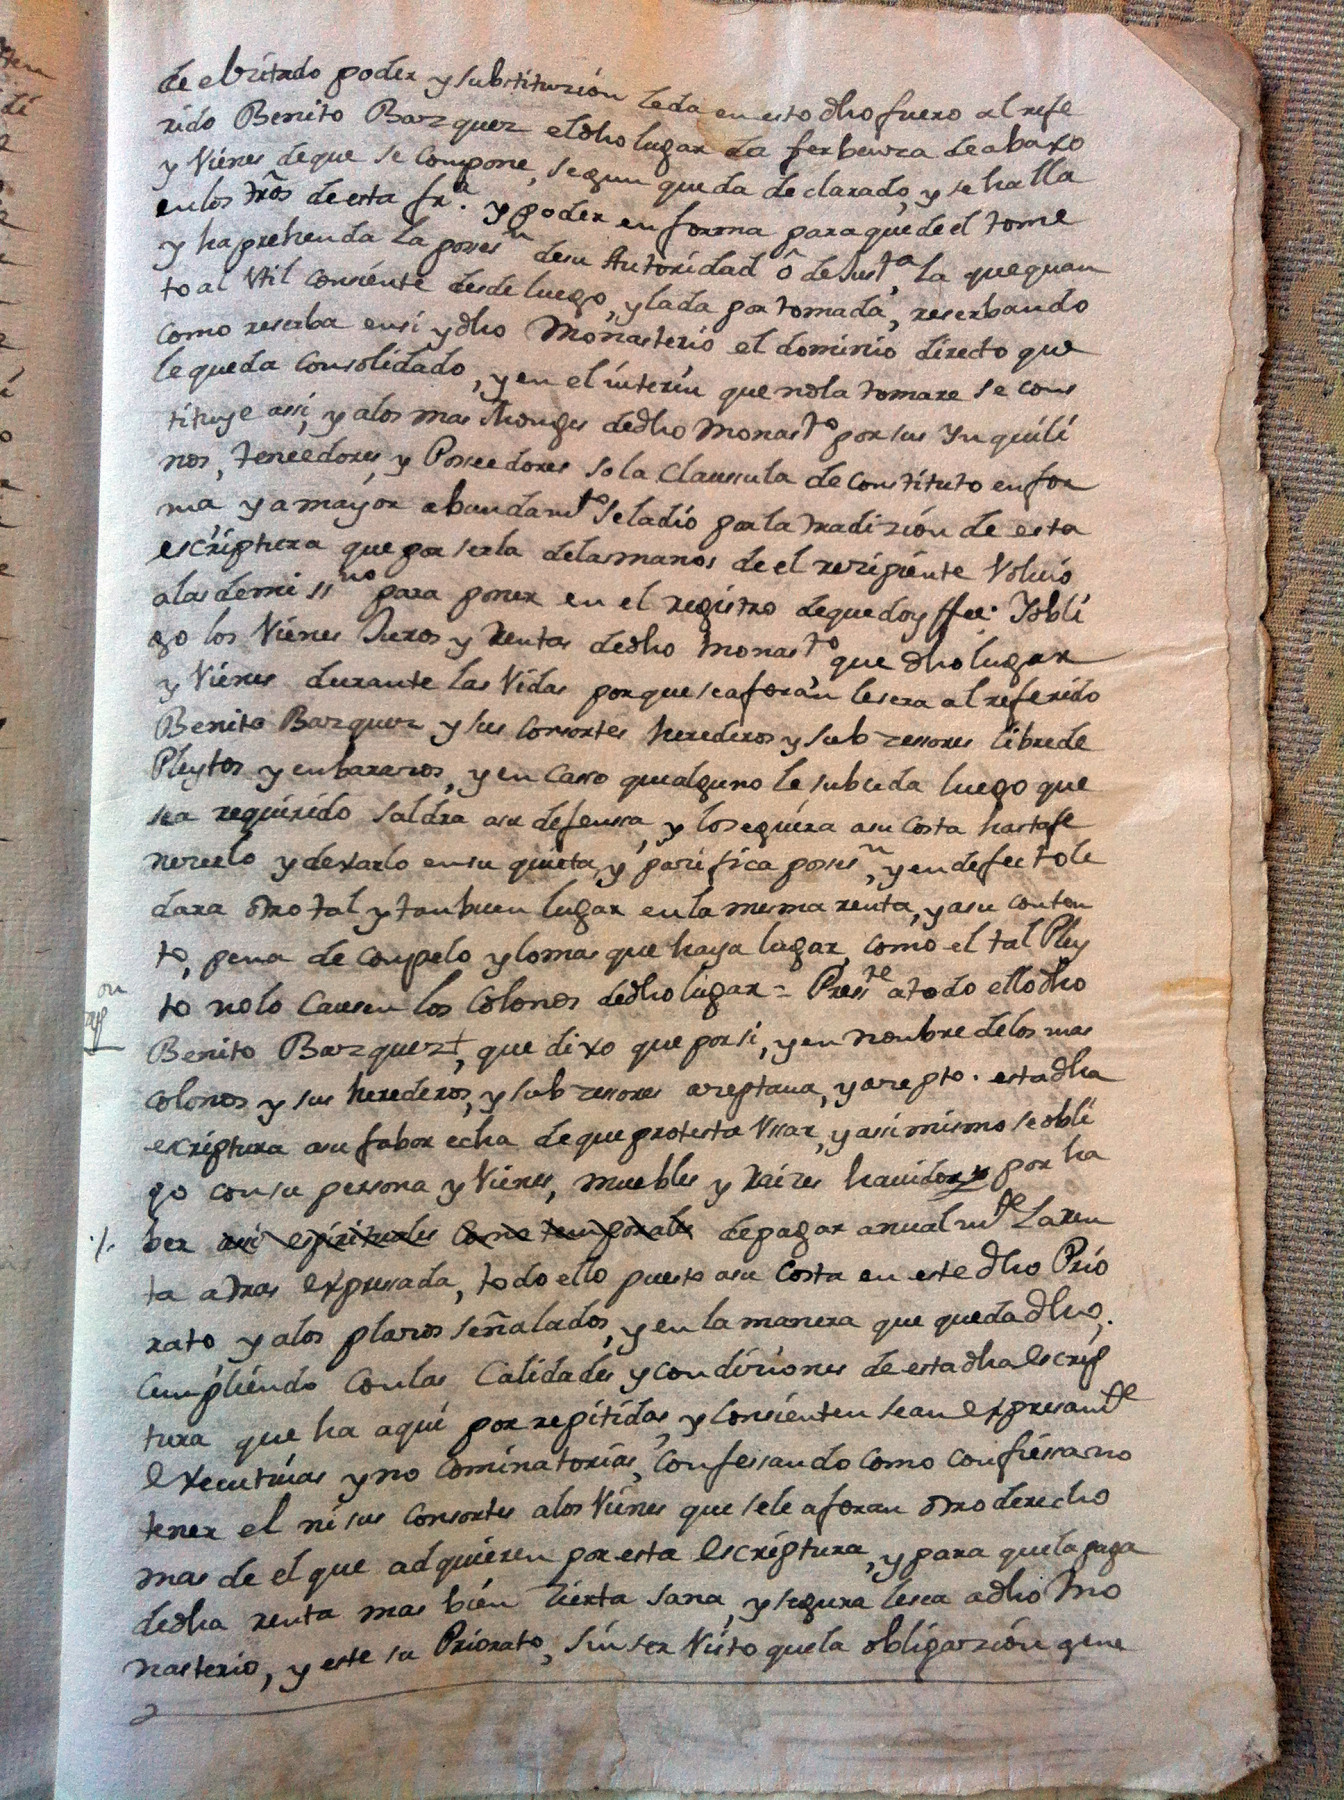 de el Zitado poder y substituzión le da en esto dho fuero al refe
rido Benito Bazquez el dho lugar da ferbenza de abaxo
y Viénes deque se compone, segun queda declarado, y se halla
en los trõs de esta fra. y poder en forma para que de el tome
y haprehenda la posesn de su Autoridad ô de Justa, la que quan
to al Util consiente desde luego, y la da por tomada, reserbando
como reserba en si y dho Monasterio el dominio directo que
le queda consolidado, y en el ínterín que no la tomare se cons
tituye assi, y a los mas Monges de dho Monasto por sus Ynquili
nos, teneedores y Poseedores so la Clausula de constituto en for
ma y a mayór abundamto se la dío por la tradizión de esta
escriptura que por serla de las manos de el rezipiente Volvió
a las de mi ssno para poner en el registro de que doy ffee. Y obli
go los Viénes Juros y Rentas de dho Monasto que dho lugar
y Viénes durante las Vidas porque se aforan le sera al referido
Benito Bazquez y sus consortes herederos y subzesores libre de
Pleytos y enbarazos, y en casso que alguno le subceda luego que
sea requirido saldra a su defenssa, y lo seguira a su costa hasta fe
nezerlo y dexarlo en su quieta y pazifica posesn, y en defecto le
dara otro tal y tan buen lugar en la mesma renta, y a su conten
to, pena de conpelo y lo mas que haya lugar, como el tal Pley
to no lo causen los Colonos de dho lugar = Preste a todo ello dho
Benito Bazquez, que dixo que por si, y en nonbre de los mas
colonos y sus herederos, y subzesores azeptaua, y azepto. esta dha
escriptura a su fabor echa de que protesta Ussar, y assimismo se obli
go con su persona y Viénes, muebles y Raizes hauidos y por ha
ber assi espirituales como temporales de pagar anualmte La ren
ta atras expresada, todo ello puesto a su costa en este dho Prio
rato y a los plazos señalados, y en la manera que queda dho,
Cumpliendo con las Calidades y condiziones de esta dha escrip
tura que ha aquí por repitidas, y consienten sean expresamte
executiuas y no cominatorias, confessando como confiessa no
tener el ni sus consortes a los Viénes que se le aforan otro derecho
mas de el que adquieren por esta escriptura, y para que la paga
de dha renta mas bien zierta sana, y segura le sea a dho Mo
nasterio, y este su Priorato, sin ser Visto que la obligazión gene